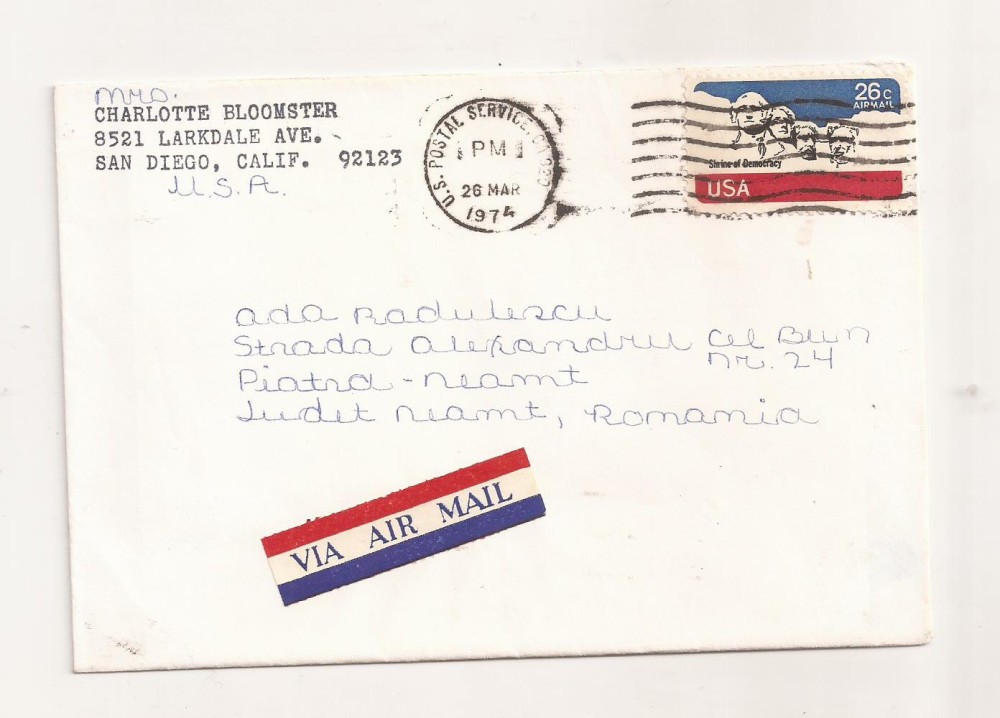 Mrs.
CHARLOTTE BLOOMSTER
8521 LARKDALE AVE.
SAN DIEGO, CALIF. 92123
U.S.A.
U.S. POSTAL SERVICE,
PM
26 MAR
1974
26c
AIRMAIL
Shrine of Democracy
USA
Ada Radulescu
Strada Alexandru cel Bun
nr. 24
Piatra-Neamt
Judet Neamt, Romania
VIA AIR MAIL